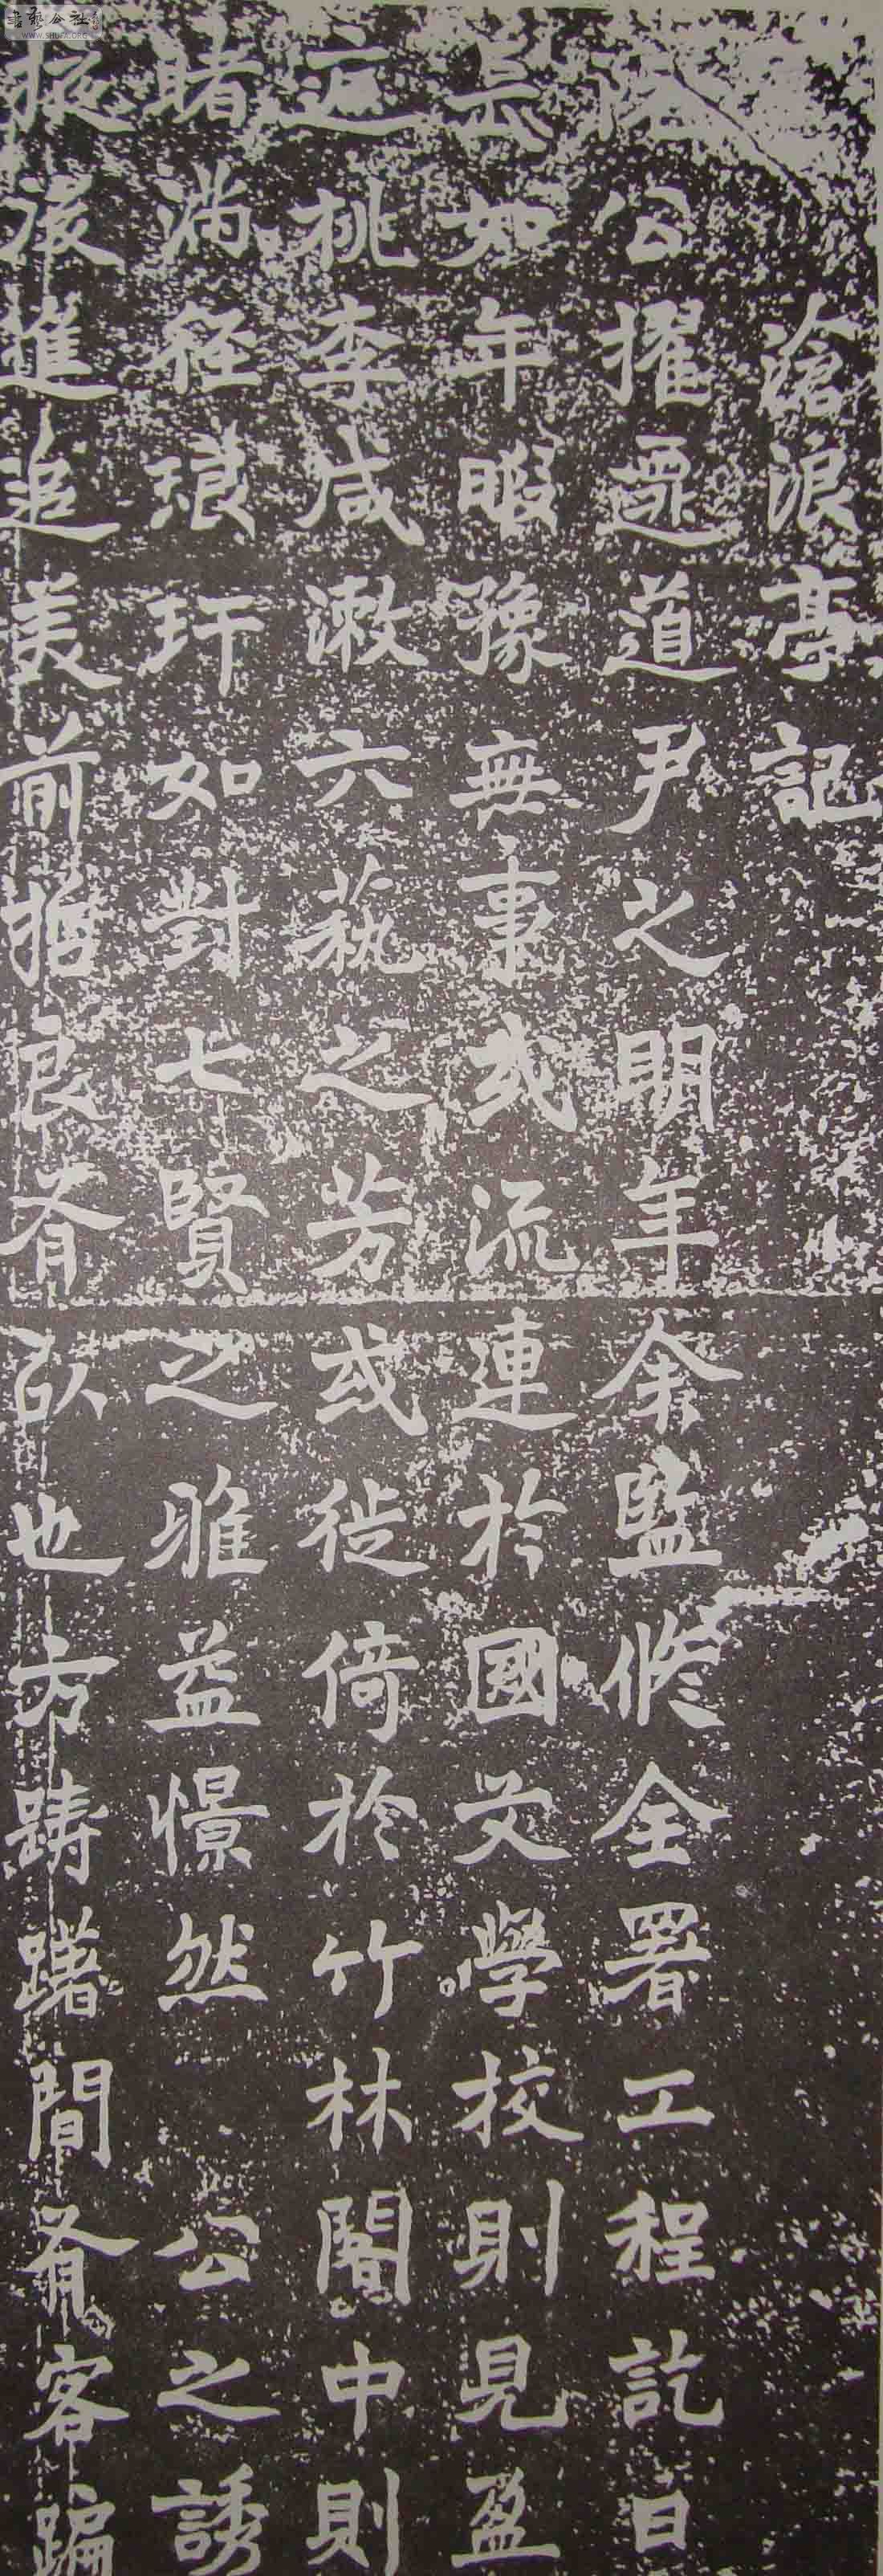 滄浪亭記
公擢遷道尹之明年余監修全署工程訖日
長如年暇豫無事或流連於國文學校則見盈
廷桃李咸漱六藝之芳或徙倚於竹林閣中則
睹滿徑琅玕如對七賢之雅益憬然公之誘
掖後進追美前哲良有以也方躊躇間有客蹁
书艺公社
WWW.SHUFA.ORG